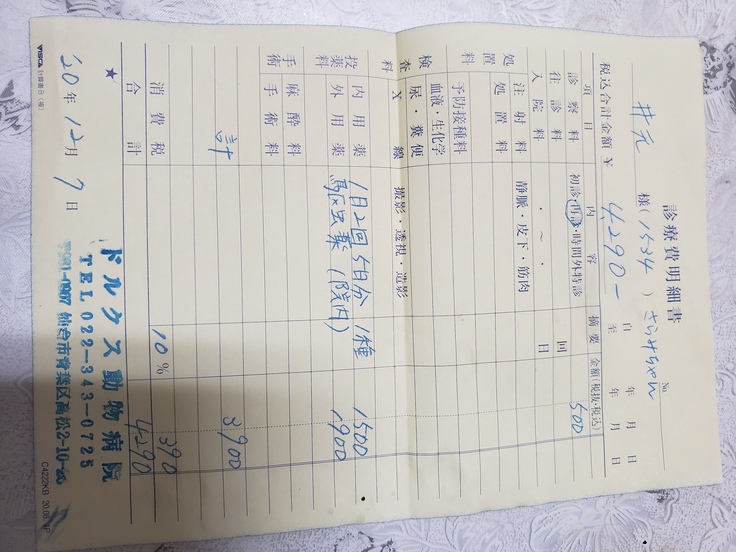 診療費明細書
No.
井元 様(1534) さらみちゃん
自 年 月 日
至 年 月 日
税込合計金額 ¥ 4,290-
項目 内容 摘要 金額(税抜・税込)
診察料 初診・再診・時間外特診 500
往診料 回
入院料 ・ ～ ・ 日
処置料
注射料 静脈・皮下・筋肉
処置料
予防接種料
検査料
血液・生化学
尿・糞便
X線 撮影・透視・造影
投薬料
内用薬 1日2回 5日分 1種 1500
外用薬 駆虫薬 (院内) 1900
手術
麻酔料
手術料
計 3,900
消費税 10% 390
合計 4,290
★
20年 12月 7日
ドルクス動物病院
TEL 022-343-0725
仙台市青葉区高松2-10-
VISCA 計算書日(単)
C4222KB 20.06